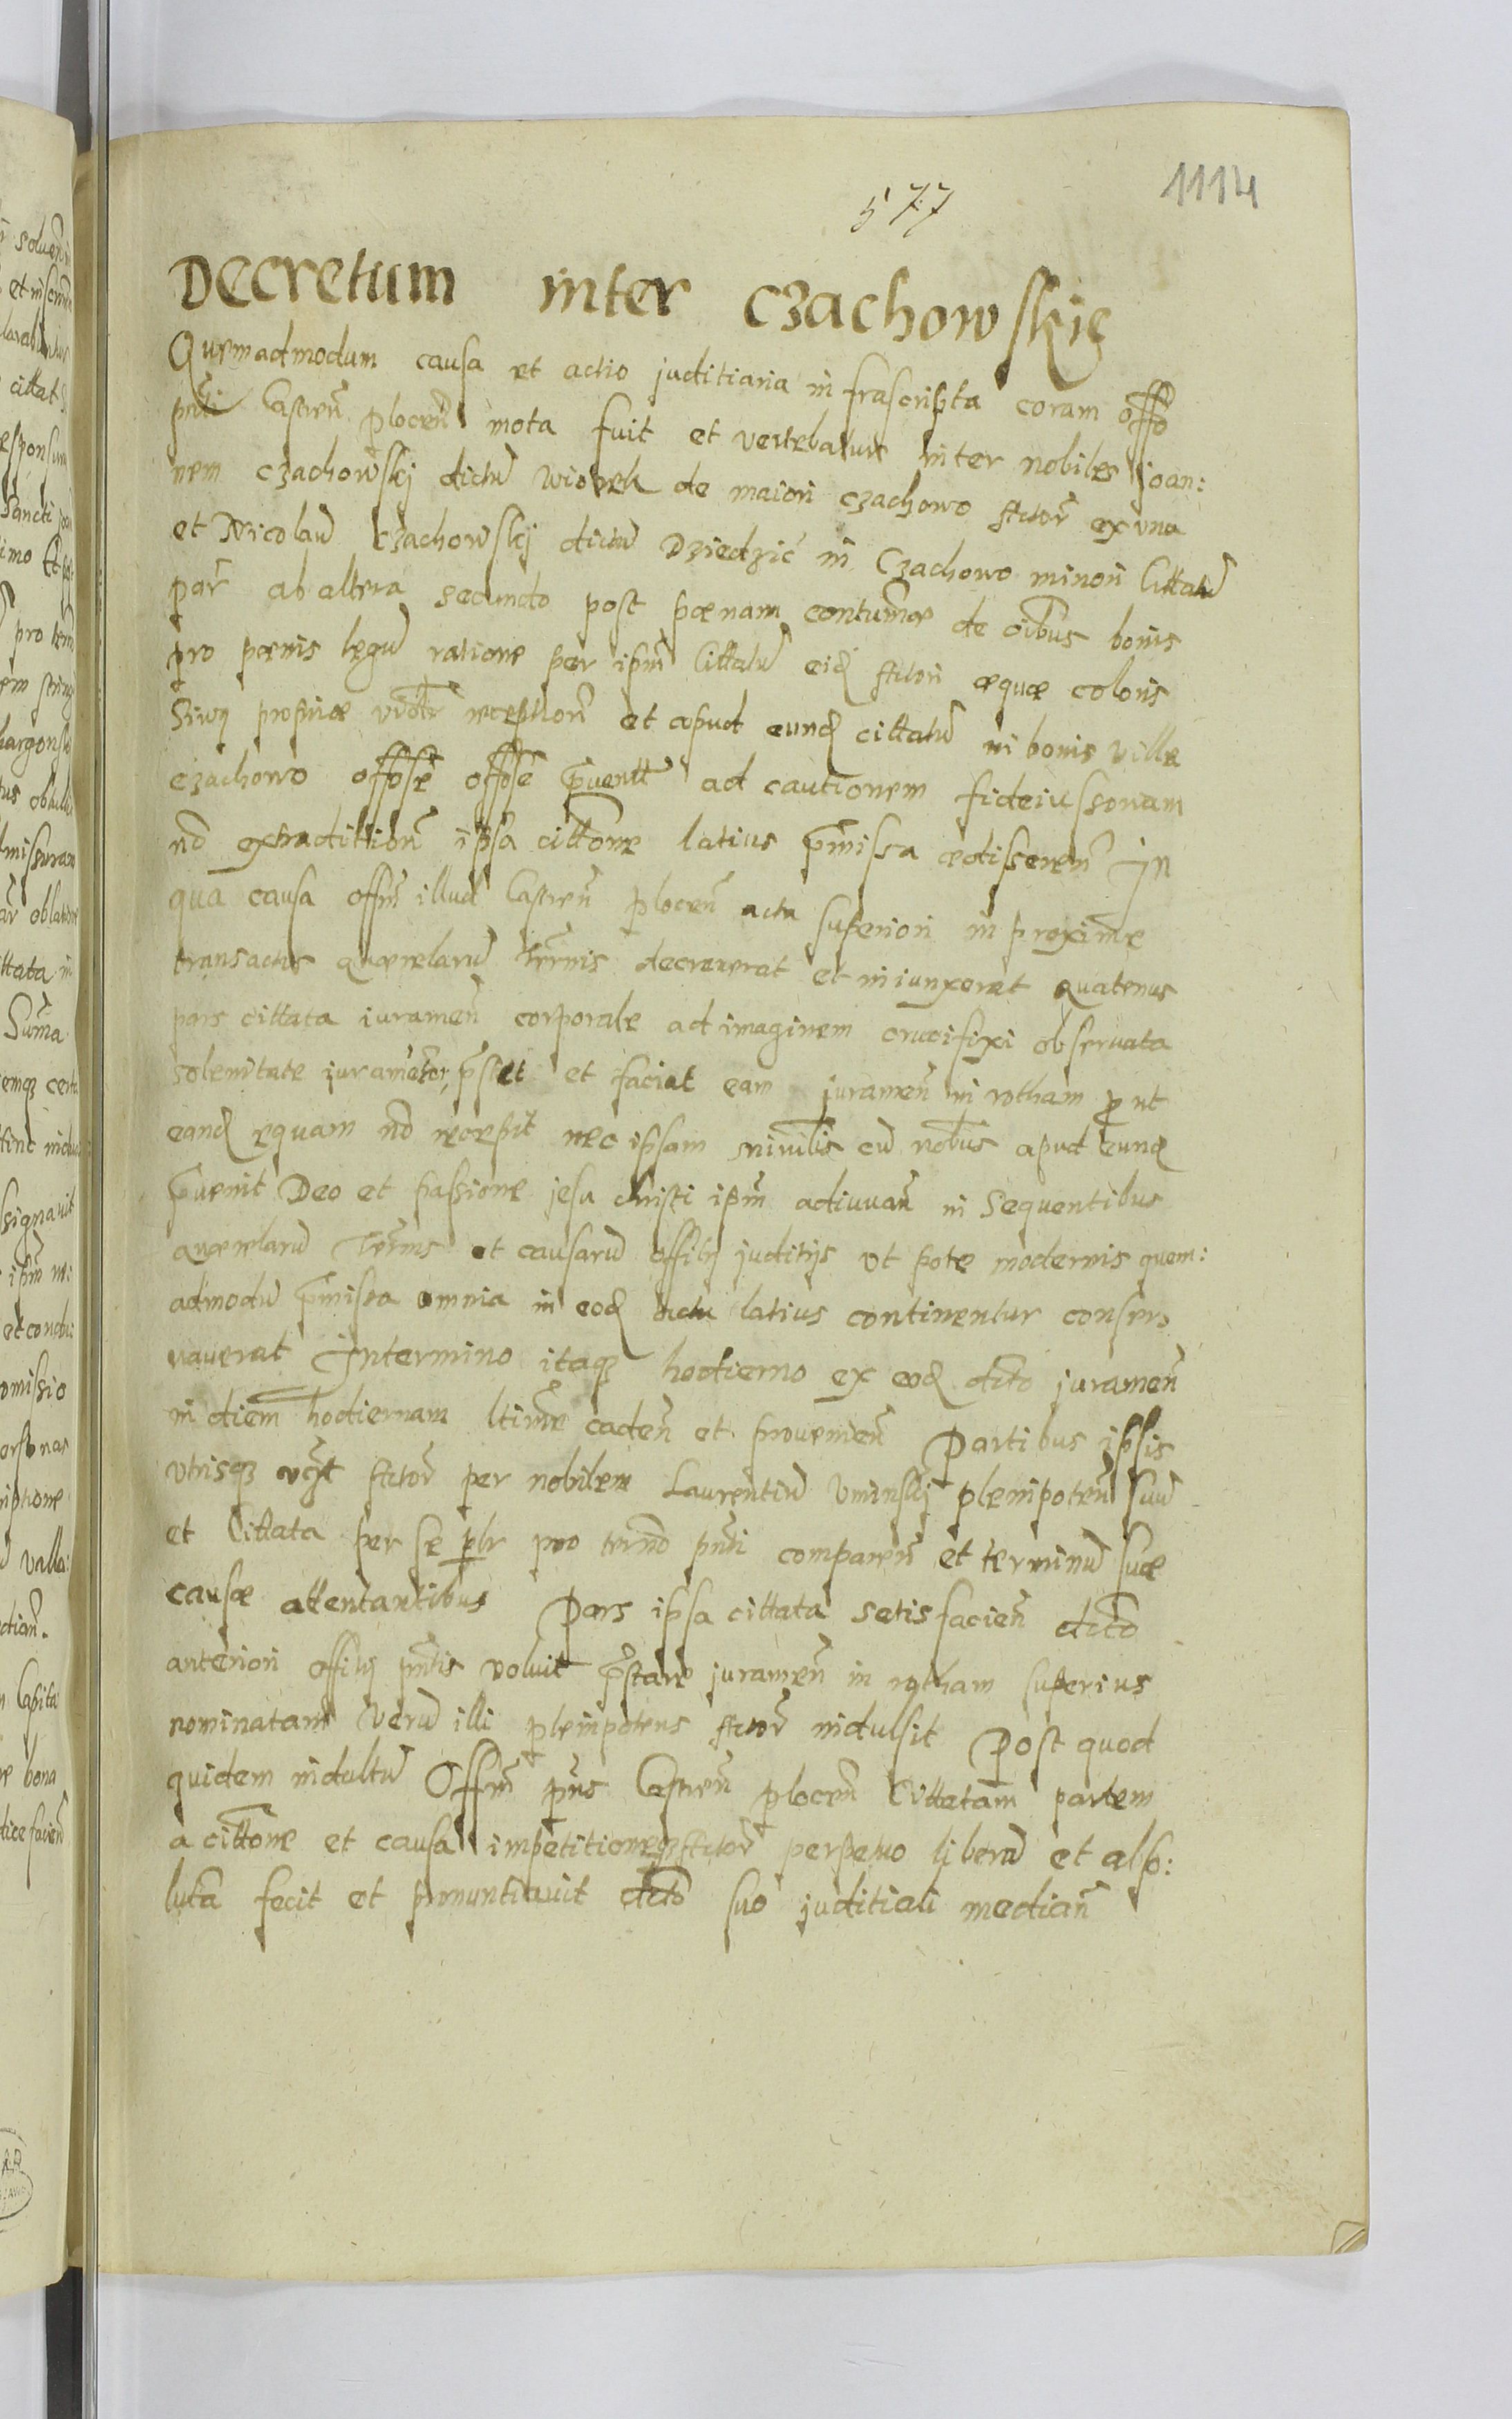 1114
577
Decretum inter Czachowskie
Quemadmodum causa et actio juditiaria infrascripta coram offo
pnti Castren plocen mota fuit et vertebatur inter nobiles Joan:
nem Czachowskj dictu Wiorek de maiori Czachowo Actore ex una
et Nicolau Czachowskj dictu Dziedzic in Czachowo minori Cittatu
par ab altera secundo post poenam contumae de oibus bonis
pro poenis legu ratione per ipm Cittatu eid Actori equae coloris
Siwy propriae recepttion et apud eund cittatu in bonis ville
Czachowo offose offose puentt ad cautionem fideiussoriam
no extradittion ipsa cittone latius pmissa edisseren In
qua causa offm illud Castren plocen actu superiori in proxime
transactis querelaru trmis decreverat et iniunxerat quatenus
pars cittata iuramen corporale ad imaginem crucifixi observata
solemnitate iuramentor pstet et faciat eam juramen in rotham prout
eand equam no recepit nec ipsam cu nobus apud eund
puenit Deo et passione jesu christi ipm adiuvan in sequentibus
querelaru Termis et causaru offity juditys ut pote modernis quem:
admodu pmissa omnia in eod actu latius continentur conser
vaverat In termino itaq hodierno ex eod dcto juramen
in diem hodiernam ltime caden et provenien Partibus ipsis
utrisq Actor per nobilem Laurentiu Uminskj plenipoten suu
et Cittata per se plr pro termo pnti comparen et terminu suae
causae attentantibus Pars ipsa cittata satisfacien dcto
anteriori offity pntis voluit pstare juramen in rotham superius
nominatam Veru illi plenipotens Actor indulsit Post quod
quidem indultu Offm pns Castren plocen Cittatam partem
a cittone et causa impetitioneq Actor perpetuo libera et abso:
luta fecit et pronuntiavit dcto suo juditiali median